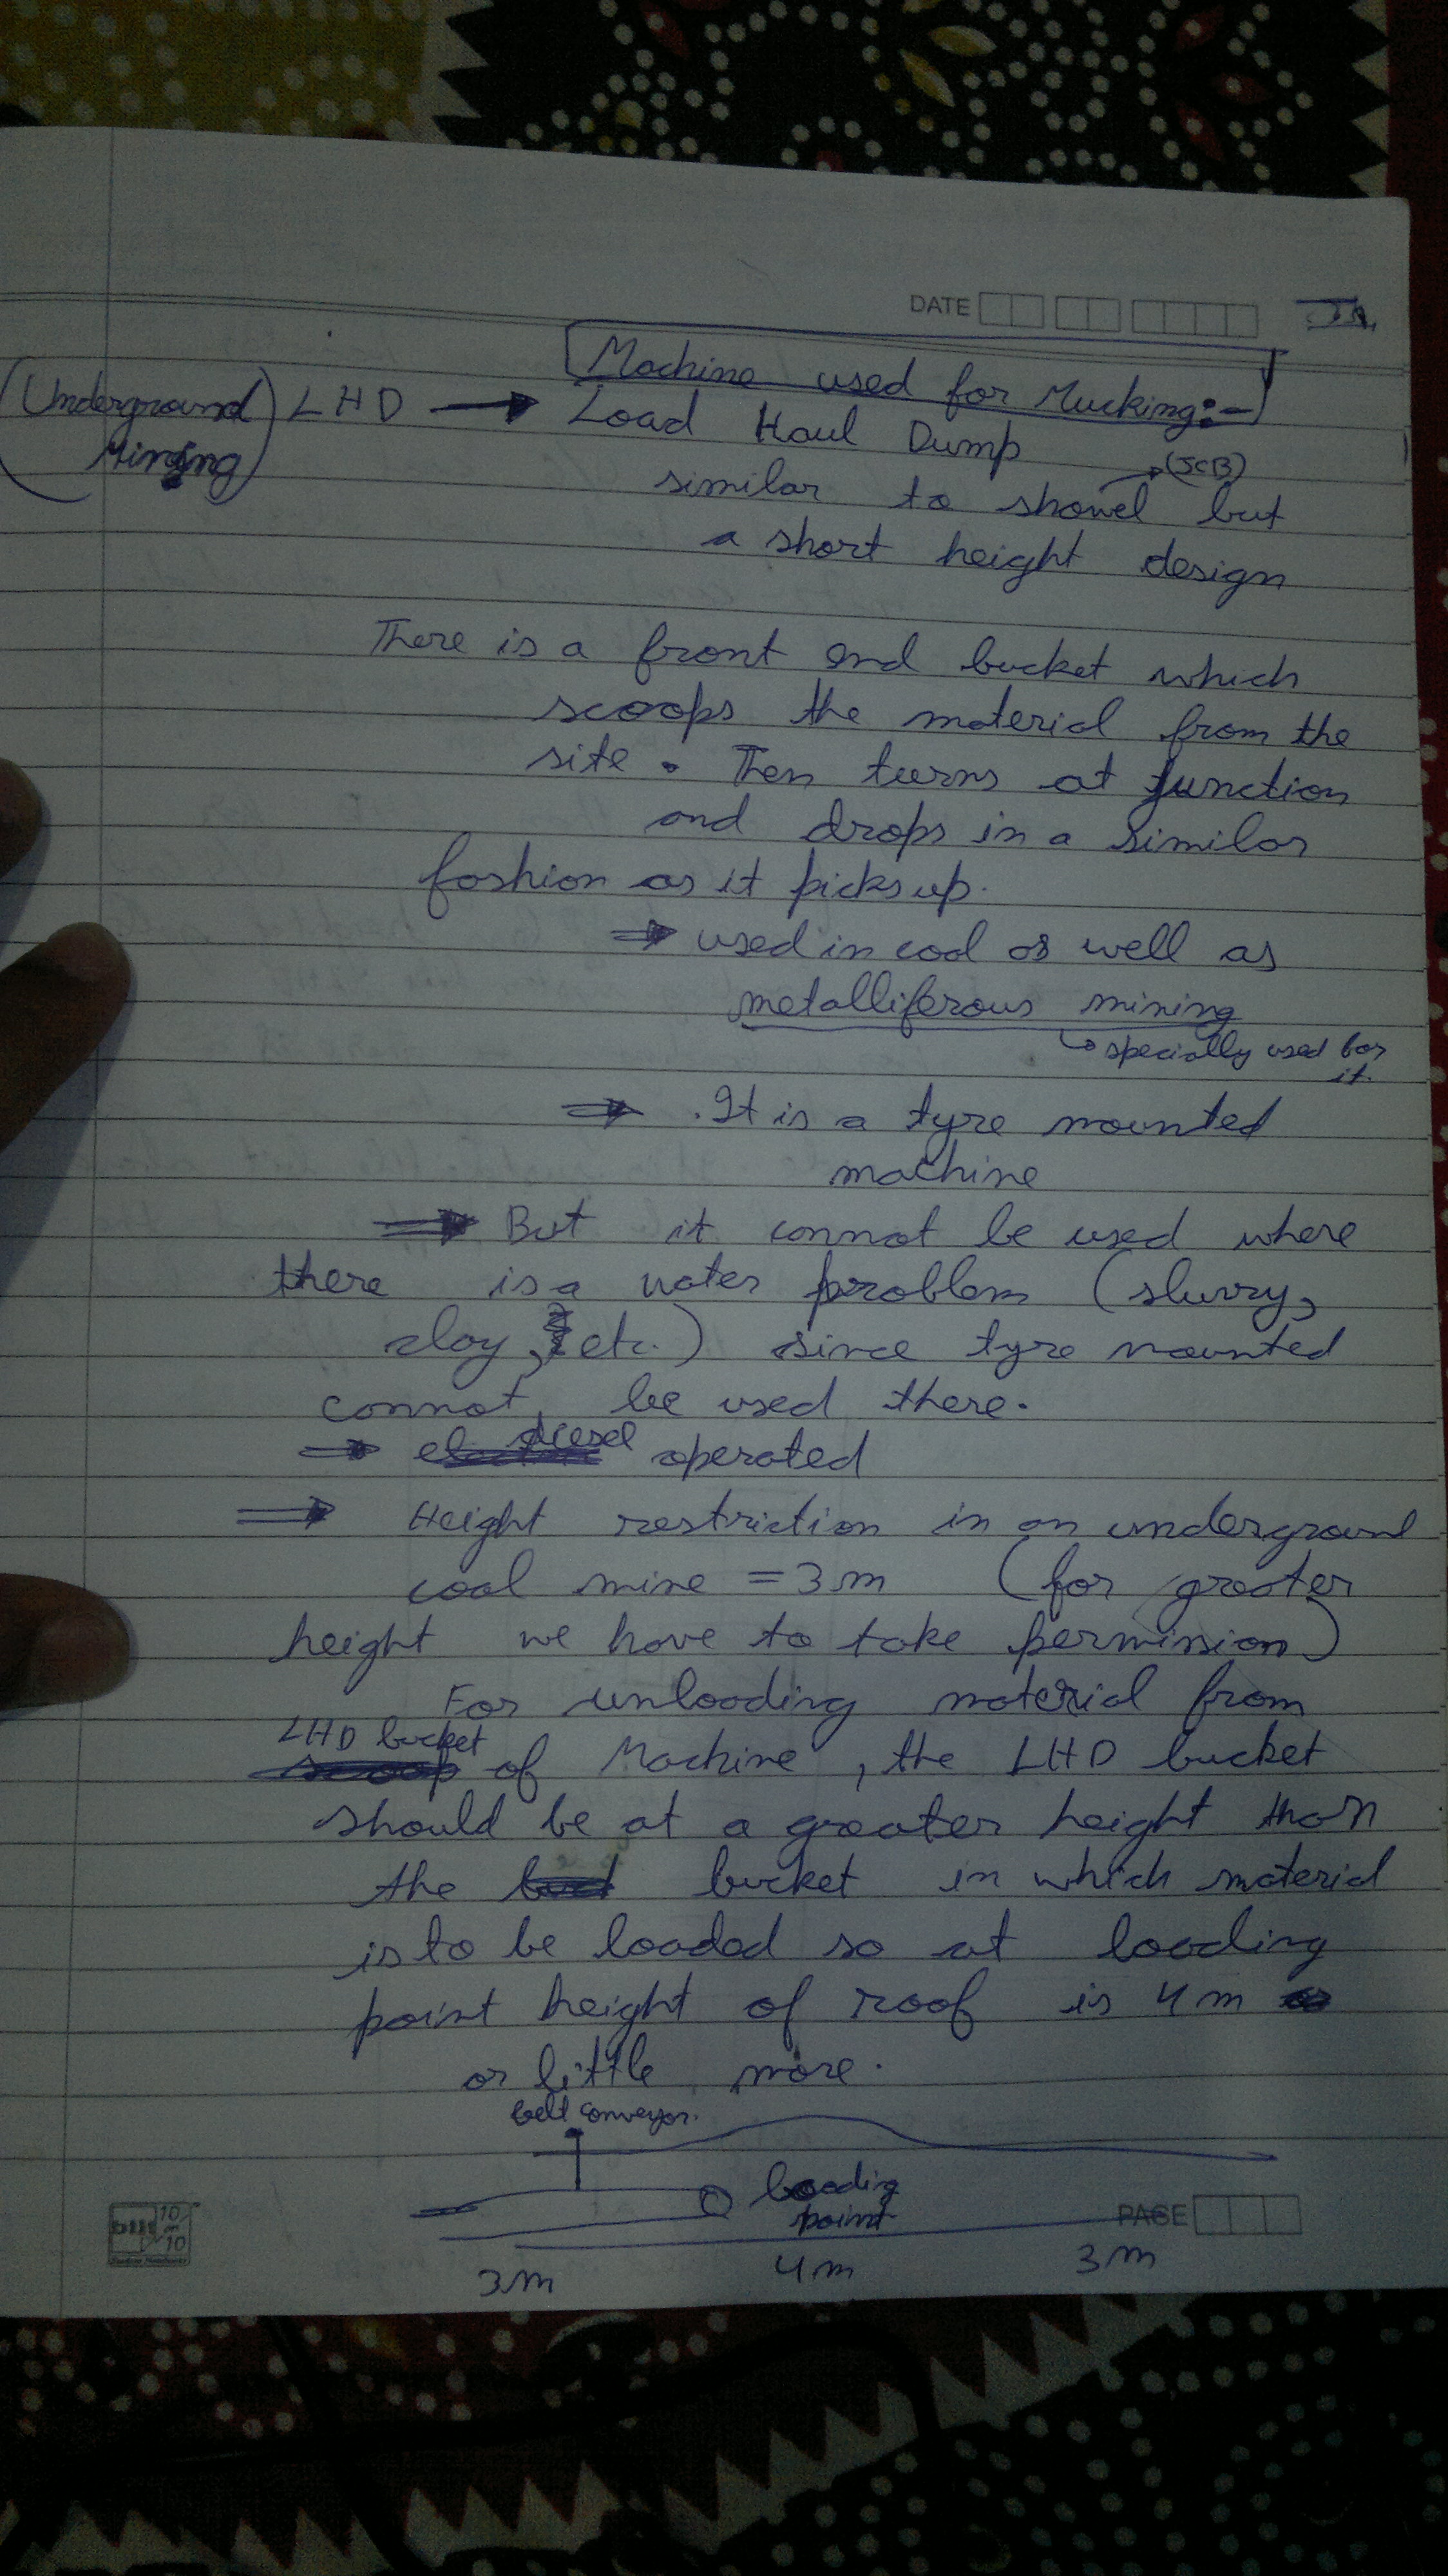 DATE
Machine used for Mucking:-
(Underground Mining) LHD → Load Haul Dump
similar to shovel (JCB) but
a short height design
There is a front end bucket which
scoops the material from the
site. Then turns at junction
and drops in a similar
fashion as it picks up.
⇒ used in coal as well as
metalliferous mining
↳ specially used for
it.
⇒ It is a tyre mounted
machine
⇒ But it cannot be used where
there is a water problem (slurry,
clay, etc.) since tyre mounted
cannot be used there.
⇒ diesel operated
⇒ Height restriction in an underground
coal mine = 3m (for greater
height we have to take permission)
For unloading material from
LHD bucket of Machine, the LHD bucket
should be at a greater height than
the bucket in which material
is to be loaded so at loading
point height of roof is 4m
or little more.
belt conveyor.
loading
point
PAGE
3m 4m 3m